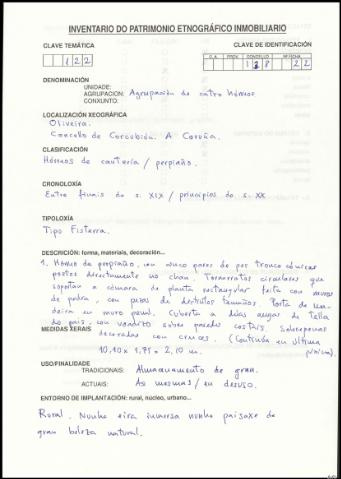 INVENTARIO DO PATRIMONIO ETNOGRÁFICO INMOBILIARIO
CLAVE TEMÁTICA CLAVE DE IDENTIFICACIÓN
C.A. PROV. CONCELLO Nº FICHA
1 2 2 1 2 8 2 2
DENOMINACIÓN
UNIDADE:
AGRUPACIÓN: Agrupación de catro hórreos
CONXUNTO:
LOCALIZACIÓN XEOGRÁFICA
Oliveira.
Concello de Corcubión. A Coruña.
CLASIFICACIÓN
Hórreos de cantería / perpiaño.
CRONOLOXÍA
Entre finais do s. XIX / principios do s. XX
TIPOLOXÍA
Tipo Fisterra.
DESCRICIÓN: forma, materiais, decoración...
1. Hórreo de perpiaño, con cinco pares de pés troncocónicos
postos directamente no chan. Tornarratos circulares que
soportan a cámara de planta rectangular feita con muros
de pedra, con pezas de distintos tamaños. Porta de ma-
deira en muro penal. Cuberta a dúas augas de tella
do país, con voadizo sobre paredes costais. Sobrepenas
MEDIDAS XERAIS decoradas con cruces. (Continúa en última
páxina).
10,10 x 1,95 x 2,10 m.
USO/FINALIDADE
TRADICIONAIS: Almacenamento de gran.
ACTUAIS: As mesmas / en desuso.
ENTORNO DE IMPLANTACIÓN: rural, núcleo, urbano...
Rural. Nunha eira inmersa nunha paisaxe de
gran beleza natural.